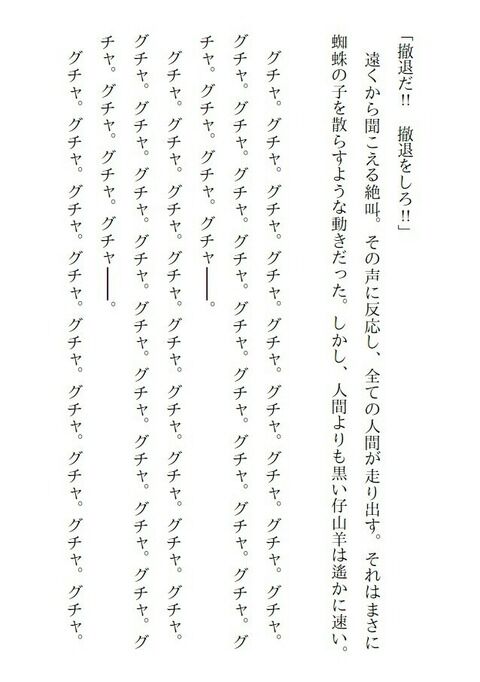 「撤退だ!!　撤退をしろ!!」
　遠くから聞こえる絶叫。その声に反応し、全ての人間が走り出す。それはまさに
蜘蛛の子を散らすような動きだった。しかし、人間よりも黒い仔山羊は遙かに速い。
　グチャ。グチャ。グチャ。グチャ。グチャ。グチャ。グチャ。グチャ。グチャ。
グチャ。グチャ。グチャ。グチャ。グチャ。グチャ。グチャ。グチャ。グチャ。グ
チャ。グチャ。グチャ。グチャ――。
　グチャ。グチャ。グチャ。グチャ。グチャ。グチャ。グチャ。グチャ。グチャ。
グチャ。グチャ。グチャ。グチャ。グチャ。グチャ。グチャ。グチャ。グチャ。グ
チャ。グチャ。グチャ。グチャ――。
　グチャ。グチャ。グチャ。グチャ。グチャ。グチャ。グチャ。グチャ。グチャ。